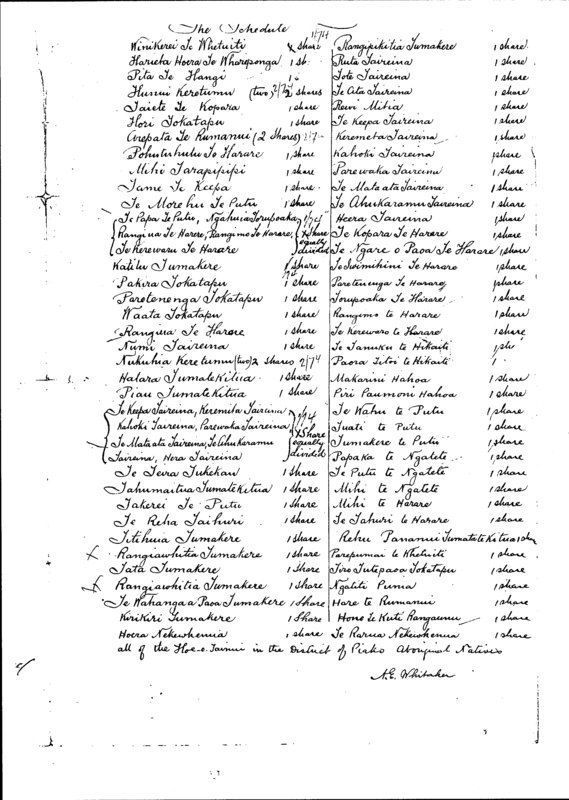 The Schedule
1/74
Winikerei Te Whetuiti 1 share
Harieta Hoera Te Whareponga 1 sh.
Pita Te Hangi 1
Hunui Keretumu (two) 2/74 2 shares
Taiete Te Kopara 1 share
Hori Tokatapu 1 share
Arepata Te Rumanui (2 Shares)
Pohutuhutu Te Harare 1 share
Mihi Tarapipipi 1 share
Tame Te Keepa 1 share
Te Morehu Te Putu 1 share
Te Papa Te Putu, Ngahuia Toupaoaka 1/74
Rangiua Te Harere, Rangimo Te Harare, 1 Share
Te Kerewaru Te Harare equally divided
Katitu Tumakere 1 share
Pakira Tokatapu 1 share
Parotenenga Tokatapu 1 share
Waata Tokatapu 1 share
Rangiua Te Harare 1 share
Numi Taireina 1 share
Nukuhia Keretumu (two) 2 shares 2/74
Hatara Tumatekitua 1 share
Piau Tumatekitua 1 Share
Te Keepa Taireina, Keremita Taireina 1/74
Kahoki Taireina, Parewaka Taireina 1 Share
Te Mataata Taireina, Te Ahukaramu equally
Taireina, Hera Taireina divided
Te Teira Tukekau 1 Share
Tahumaitua Tumatekitua 1 Share
Takerei Te Putu 1 share
Te Reha Taihuri 1 share
Titihuia Tumakere 1 share
Rangiawhitia Tumakere 1 share
Tata Tumakere 1 Share
Rangiawhitia Tumakere 1 Share
Te Wahanga a Paoa Tumakere 1 Share
Kirikiri Tumakere 1 Share
Hoera Nekewhenua 1 share
Rangipikitia Tumakere 1 share
Ruta Taireina 1 share
Tote Taireina 1 share
Te Ata Taireina 1 share
Rewi Mitia 1 share
Te Keepa Taireina 1 share
Keremeta Taireina 1 share
Kahoki Taireina 1 share
Parewaka Taireina 1 share
Te Mataata Taireina 1 share
Te Ahukaramu Taireina 1 share
Heera Taireina 1 share
Te Kopara Te Harere 1 share
Te Ngare o Paoa Te Harare 1 share
Te Iwimihini Te Harare 1 share
Paretenenga Te Harare 1 share
Toupaoka Te Harare 1 share
Rangimo te Harare 1 share
Te Kerewaro te Harare 1 share
Te Tanuku te Hikaiti 1 sh
Paora Titoi te Hikaiti 1
Makarini Hahoa 1 share
Piri Paumoni Hahoa 1 share
Te Wahu te Putu 1 share
Tuati te Putu 1 share
Tumakere te Putu 1 share
Papaka te Ngatete 1 share
Te Putu te Ngatete 1 share
Mihi te Ngatete 1 share
Mihi te Harare 1 share
Te Tahuri te Harare 1 share
Rehu Panamui Tumatatekitua 1 sh
Parepumai te Whetuiti 1 share
Tiro Tutepaoa Tokatapu 1 share
Ngatiti Punia 1 share
Hare te Rumanui 1 share
Hone Te Kuti Rangaunu 1 share
Te Rarua Nekewhenua 1 share
all of the Hoe-o-Tainui in the District of Piako Aboriginal Natives
A.E. Whitaker